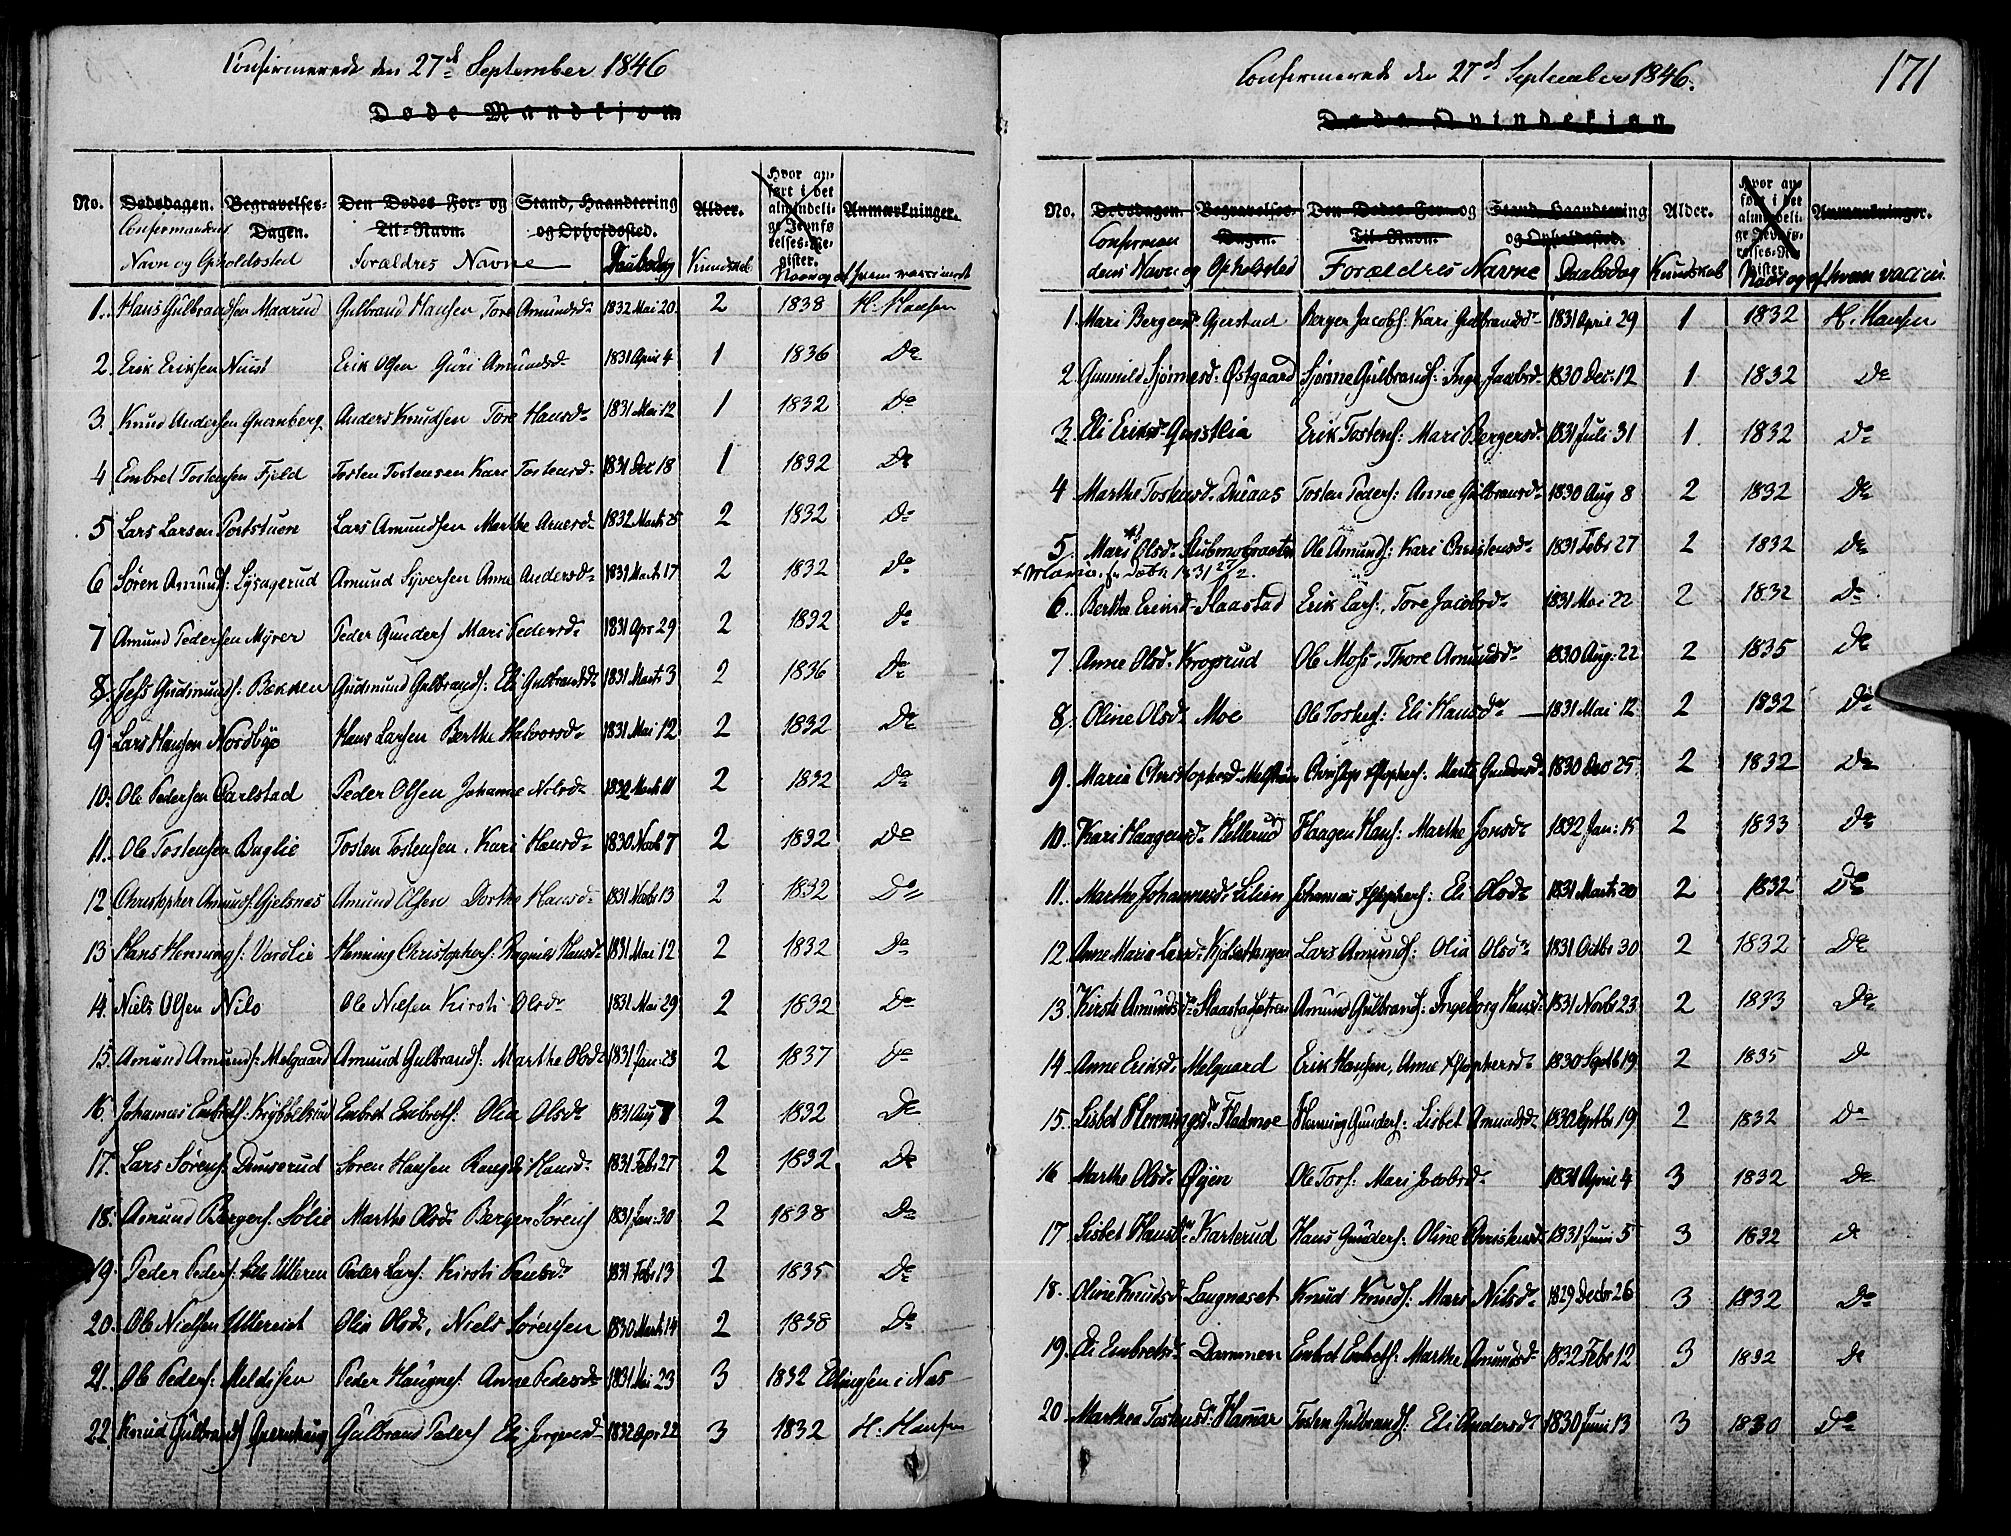 Confirmerede den 27de September 1846
Døde Mandkjøn
No. Dødsdagen. Begravelses-Dagen. Den Dødes For- og Til-Navn. Stand, Haandtering og Opholdssted. Alder. Hvor anført i det almindelige Jevnførelses-Register. Anmærkninger.
Confirmandens Navn og Opholdssted Forældres Navne Daabsdag Kundskab Naar og af hvem vaccineret
1. Hans Gulbrandsen Maarud Gulbrand Hansen Tore Amundsd. 1832 Mai 20 2 1838 H. Hansen
2. Erik Eriksen Nust Erik Olsen Guri Amundsd. 1831 April 4 1 1836 Do
3. Knud Andersen Qvernberg Anders Knudsen Tore Hansd. 1831 Mai 12 1 1832 Do
4 Embret Tostensen Fjeld Tosten Tostensen Kari Tostensd. 1831 Dec 18 1 1832 Do
5 Lars Larsen Portstuen Lars Amundsen Marthe Arnesd. 1832 Marts 25 2 1832 Do
6 Søren Amunds: Lysagerud Amund Syversen Anne Andersd. 1831 Marts 17 2 1832 Do
7 Amund Pedersen Myrer Peder Gunders Mari Pedersd. 1831 Apr 29 2 1832 Do
8 Jens Gudmunds: Bekken Gudmund Gulbrands: Eli Gulbrandsd. 1831 Marts 3 2 1836 Do
9 Lars Hansen Nordbye Hans Larsen Berthe Halvorsd. 1831 Mai 12 2 1832 Do
10. Ole Pedersen Carlstad Peder Olsen Johanne Nilsd. 1832 Marts 11 2 1832 Do
11. Ole Tostensen Baglie Tosten Tostensen, Kari Hansd. 1830 Novb 7 2 1832 Do
12 Christopher Amunds. Gjelsnes Amund Olsen Dorthe Hansd. 1831 Novbr 13 2 1832 Do
13 Hans Hennings: Vardlie Henning Christophers: Ragnild Hansd. 1831 Mai 12 2 1832 Do
14. Niels Olsen Nilo Ole Nielsen Kirsti Olsd. 1831 Mai 29 2 1832 Do
15. Amund Amunds: Melgaard Amund Gulbrands: Marthe Olsd. 1831 Jan: 23 2 1837 Do
16. Johannes Embrets: Krybbelsrud Embret Embrets: Olia Olsd. 1831 Aug 7 2 1832 Do
17. Lars Sørens: Dunserud Søren Hansen Hansd. 1831 Febr 27 2 1832 Do
18. Amund Bergers: Solie Marthe Olsd. Berger Sørens 1831 Jan: 30 2 1838 Do
19. Peder Peders: Ulleren Peder Lars: Kirsti Paulsd. 1831 Febr 13 2 1835 Do
20. Ole Nielsen Ullereiet Olia Olsd, Niels Sørensen 1830 Marts 14 2 1838 Do
21. Ole Peders: Meldisen Peder Haagens: Anne Pedersd. 1831 Mai 23 3 1832 Ellingsen i Næs
22 Knud Gulbrands Qvernberg Gulbrand Peders Eli Jørgensd. 1832 Apr: 22 3 1832 H: Hansen
Confirmerede den 27de September 1846.
171
Døde Qvindekjøn
No. Dødsdagen. Begravelses-Dagen. Den Dødes For- og Til-Navn. Stand, Haandtering og Opholdssted. Alder. Hvor anført i det almindelige Jevnførelses-Register. Anmærkninger.
Confirmandens Navn og Opholdssted Forældres Navne Daabsdag Kundskab Naar og af hvem vaccin.
1. Mari Bergersd. Gjerstad Berger Jacobs: Kari Gulbrandsd. 1831 April 29 1 1832 H. Hansen
2. Gunnild Sjønnesd: Østgaard Sjønne Gulbrands: Inge Jacobsd. 1830 Dec: 12 1 1832 Do
3. Eli Eriksd. Qvistlia Erik Tostens: Mari Bergersd. 1831 Juli 31 1. 1832 Do
4 Marthe Tostensd. Dusaas Tosten Peders: Anne Gulbransd. 1830 Aug 8 2 1832 Do
5. Mari Olsd. Ole Amunds: Kari Christensd. 1831 Febr 27 2 1832 Do
+ Maria, fr. Døbt 1831 27/2.
6. Berthe Eriksd. Slaastad Erik Lars:, Tore Jacobsd. 1831 Mai 22 2 1832 Do
7 Anne Olsd. Krogsrud Ole Mons, Thore Amundsd. 1830 Aug: 22 2 1835 Do
8. Oline Olsd. Moe Ole Tostens: Eli Hansd. 1831 Mai 12 2 1832 Do
9. Maria Christophersd. Marte Gundersd. 1830 Dec 25 2 1832 Do
10. Kari Haagensd. Hellerud Haagen Hans: Marthe Jonsd. 1832 Jan: 15 2 1833 Do
11. Marthe Johannesd. Lilien Johannes : Eli Olsd. 1831 Marts 20 2 1832 Do
12. Anne Maria Larsd. Lars Amunds: Olia Olsd. 1831 Octbr 30 2 1832 Do
13. Kirsti Amundsd. Slaastadsetren Amund Gulbrands: Ingeborg Hansd. 1831 Novbr 23 2 1833 Do
14. Anne Eriksd. Melgaard Erik Hansen, Anne 1830 Septb 19 2 1835 Do
15. Lisbet Henningsd. Fladmoe Henning Gunders: Lisbet Amundsd. 1830 Septbr 19 2 1832 Do
16 Marthe Olsd. Øyen Ole Tors: Mari Jacobsd. 1831 April 4 3 1832 Do
17. Lisbet Hansd. Karterud Hans Gunders: Oline Christensd. 1831 Juni 5 3 1832 Do
18. Oline Knudsd. Langneset Knud Knuds: Mari Nilsd. 1829 Decbr 26 3 1832 Do
19. Eli Embretsd. Dammen Embret Embrets: Marthe Amundsd. 1832 Febr 12 3 1832 Do
20 Marthea Tostensd. Hamar Tosten Gulbrands: Eli Andersd. 1830 Juni 13 3 1830 Do